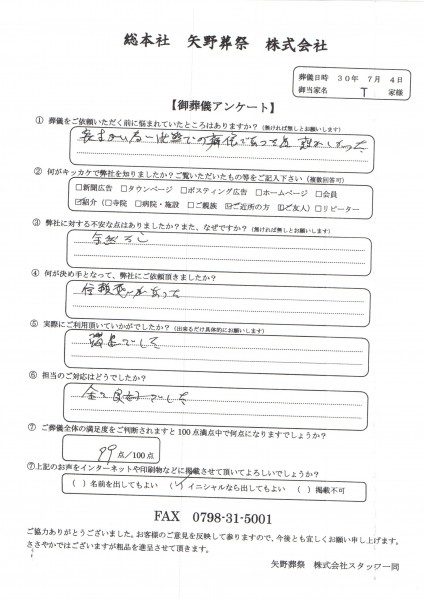 総本社 矢野葬祭 株式会社
葬儀日時 30年 7月 4日
御当家名 T 家様
【御葬儀アンケート】
① 葬儀をご依頼いただく前に悩まれていたところはありますか？(無ければ無しとお願いします)
② 何がキッカケで弊社を知りましたか？ご覧いただいたもの等をご記入下さい(複数回答可)
□新聞広告 □タウンページ □ポスティング広告 □ホームページ □会員
☑紹介 (□寺院 □病院・施設 □ご親族 ☑ご近所の方 ☑ご友人) □リピーター
③ 弊社に対する不安な点はありましたか？また、なぜですか？(無ければ無しとお願いします)
全然なし
④ 何が決め手となって、弊社にご依頼頂きましたか？
信頼感があった
⑤ 実際にご利用頂いていかがでしたか？(出来るだけ具体的にお願いします)
満足でした
⑥ 担当のご対応はどうでしたか？
全て良好でした
⑦ ご葬儀全体の満足度をご判断されますと100点満点中で何点になりますでしょうか？
99点/100点
⑦上記のお声をインターネットや印刷物などに掲載させて頂いてよろしいでしょうか？
( ) 名前を出してもよい (✓) イニシャルなら出してもよい ( ) 掲載不可
FAX 0798-31-5001
ご協力ありがとうございました。お客様のご意見を反映して参りますので、今後とも宜しくお願い申し上げます。
ささやかではございますが粗品を進呈させて頂きます。
矢野葬祭 株式会社スタッフ一同